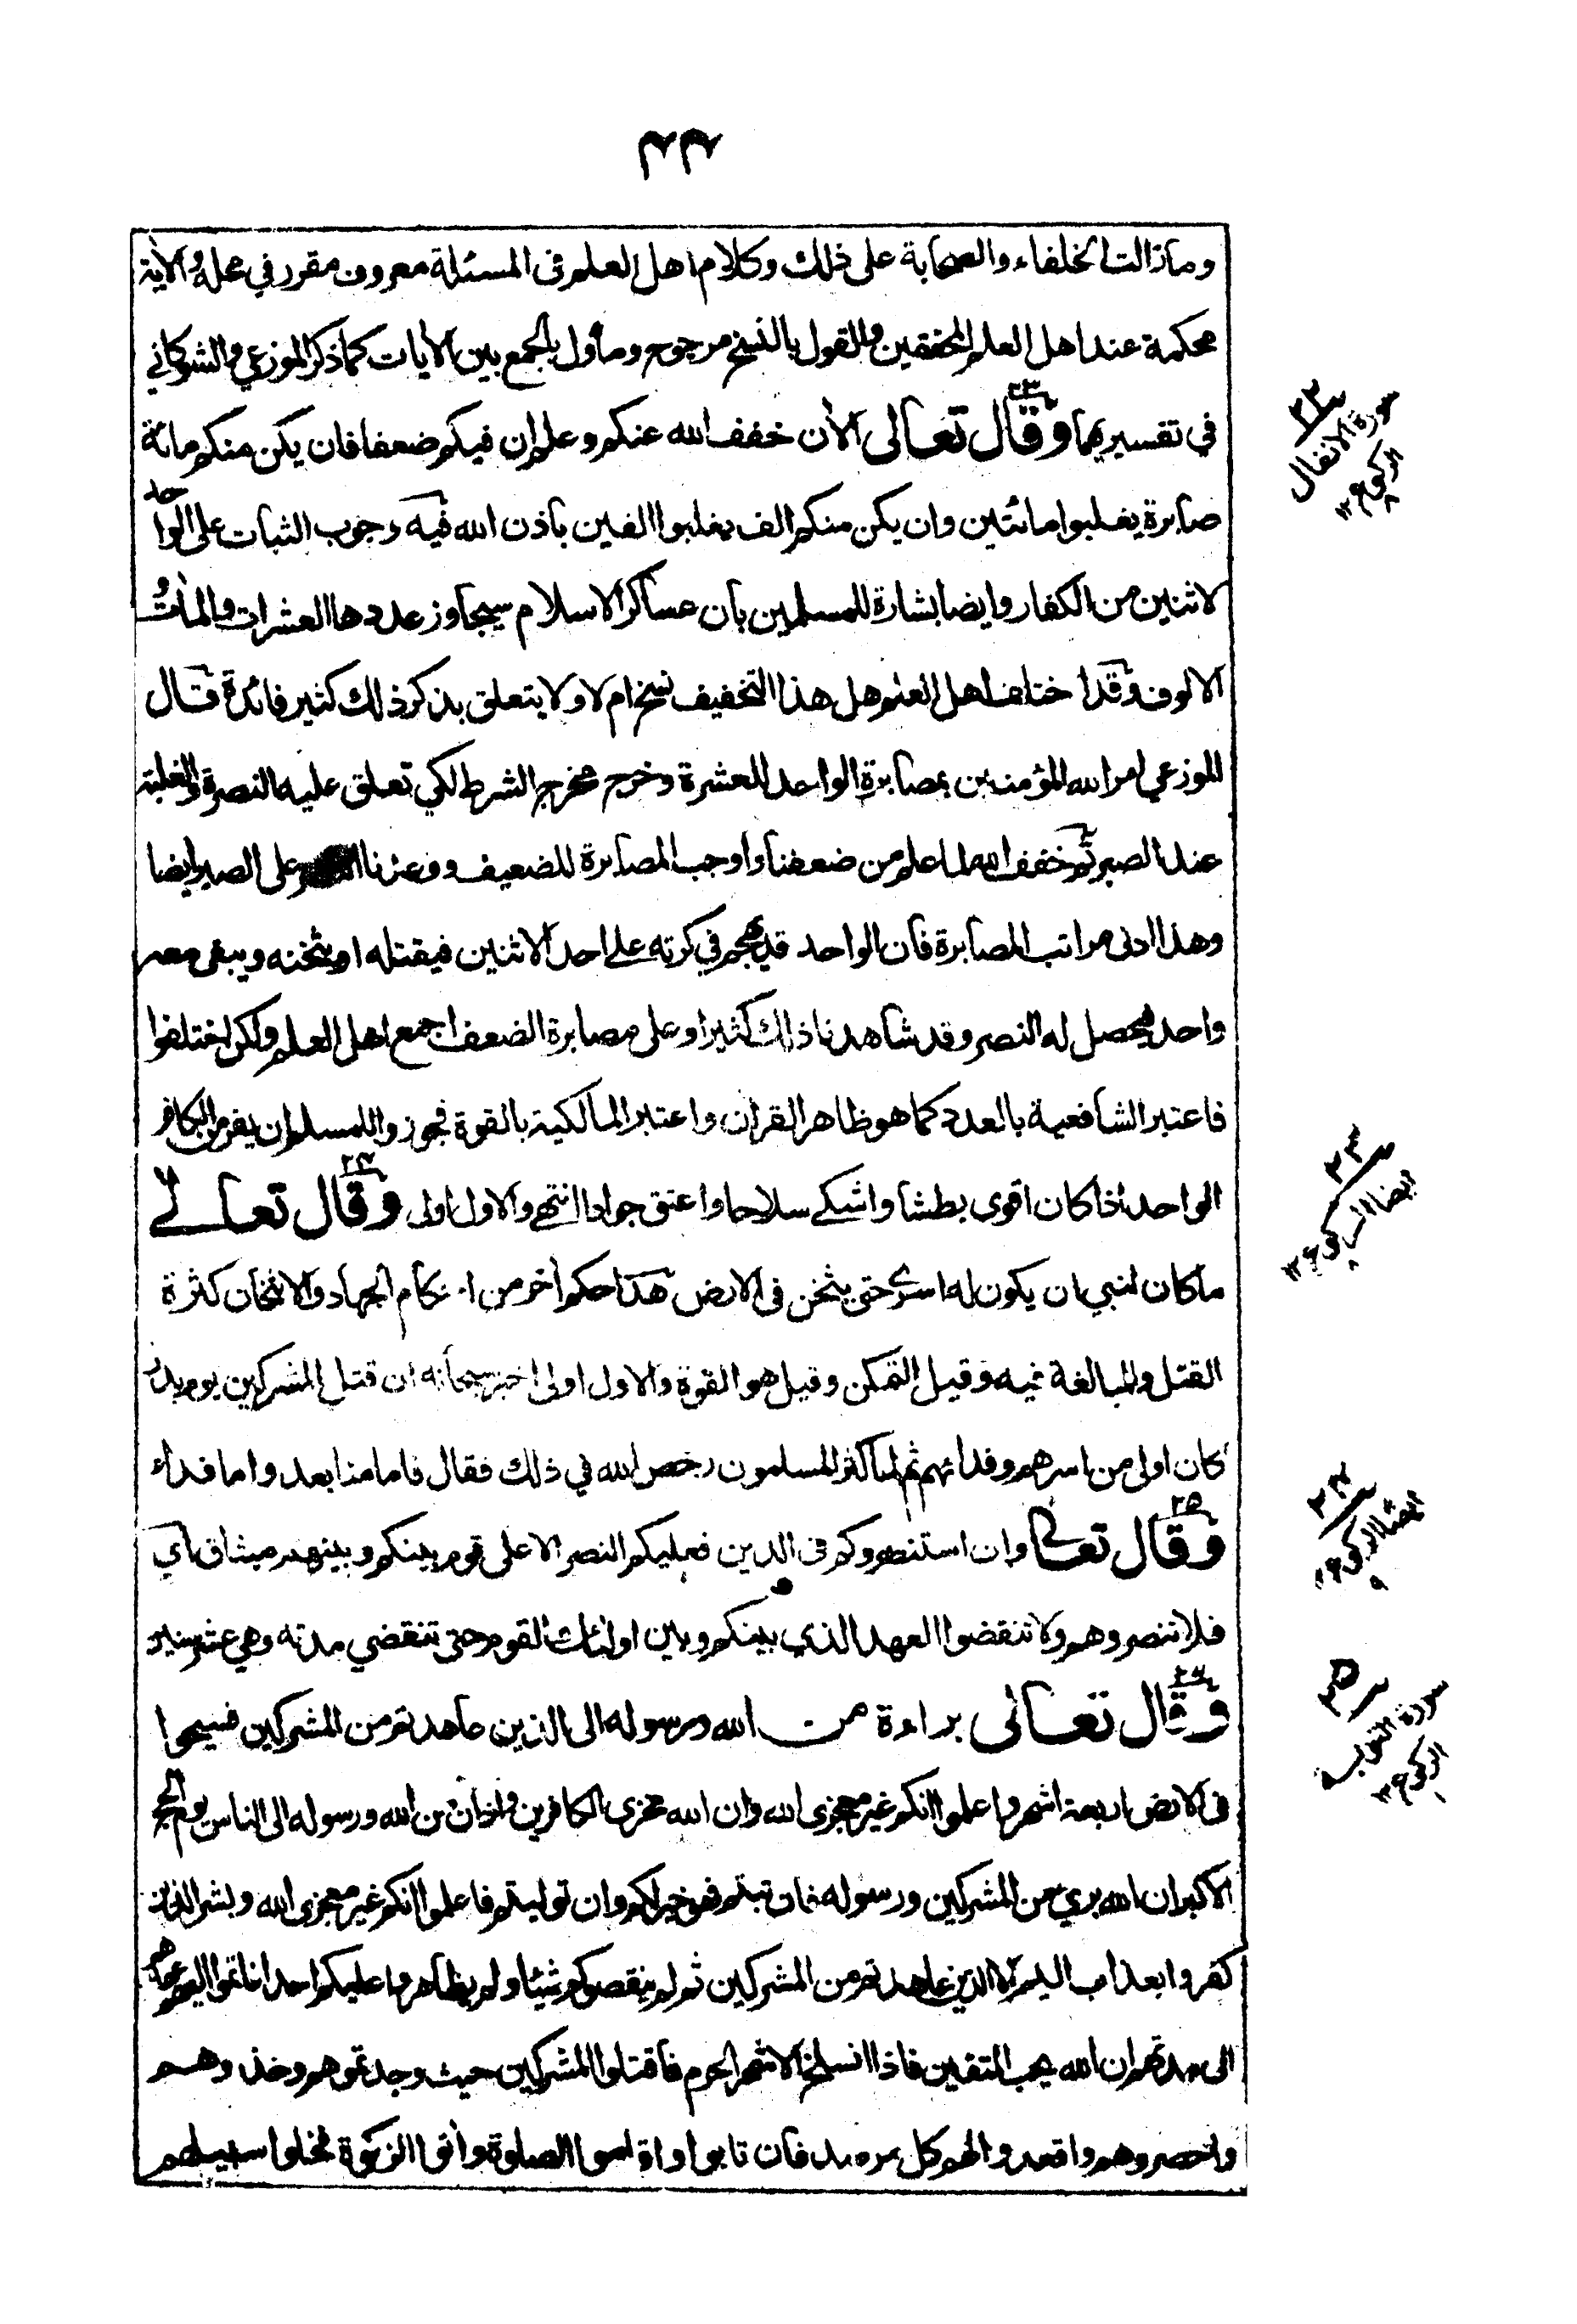 ٣٣
ومازالت الخلفاء والصحابة على ذلك وكلام اهل العلم في المسئلة معروف مقرر في محله والآية
محكمة عند اهل العلم المحققين والقول بالنسخ مرجوح ومأول بالجمع بين الآيات كما ذكر الموزعي والشوكاني
في تفسيريهما وقال تعالى الآن خفف الله عنكم وعلم ان فيكم ضعفا فان يكن منكم مائة
صابرة يغلبوا مائتين وان يكن منكم الف يغلبوا الفين باذن الله فيه وجوب الثبات على الواحد
لاثنين من الكفار وايضا بشارة للمسلمين بان عساكر الاسلام سيجاوز عددها العشرات والمأت و
الالوف وقد اختلف اهل العلم هل هذا التخفيف نسخ ام لا ولا يتعلق بذكر ذلك كثير فائدة قال
الموزعي امر الله المؤمنين بمصابرة الواحد للعشرة وخرج مخرج الشرط لكي تعلق عليه النصرة والغلبة
عند الصبر ثم خفف الله لما علم من ضعفنا واوجب المصابرة للضعيف ووعدنا على الصبر ايضا
وهذا ادنى مراتب المصابرة فان الواحد قد يهجم في كرته على احد الاثنين فيقتله او يثخنه ويبقى معه
واحد فيحصل له النصر وقد شاهدنا ذلك كثيرا وعلى مصابرة الضعف اجمع اهل العلم ولكن اختلفوا
فاعتبر الشافعية بالعدد كما هو ظاهر القران واعتبر المالكية بالقوة فجوزوا للمسلم ان يفر من الكافر
الواحد اذا كان اقوى بطشا واشكى سلاحا واعتق جوادا انتهى والاول اولى وقال تعالى
ما كان لنبي ان يكون له اسرى حتى يثخن في الارض هذا حكم آخر من احكام الجهاد والاثخان كثرة
القتل والمبالغة فيه وقيل التمكن وقيل هو القوة والاول اولى اخبر سبحانه ان قتل المشركين يوم بدر
كان اولى من اسرهم وفدائهم ثم لما كثر المسلمون رخص الله في ذلك فقال فاما منا بعد واما فداء
وقال تعالى وان استنصروكم في الدين فعليكم النصر الا على قوم بينكم وبينهم ميثاق اي
فلا تنصروهم ولا تنقضوا العهد الذي بينكم وبين اولئك القوم حتى تنقضي مدته وهي عشر سنين
وقال تعالى براءة من الله ورسوله الى الذين عاهدتم من المشركين فسيحوا
في الارض اربعة اشهر واعلموا انكم غير معجزي الله وان الله مخزي الكافرين واذان من الله ورسوله الى الناس يوم الحج
الاكبر ان الله بريء من المشركين ورسوله فان تبتم فهو خير لكم وان توليتم فاعلموا انكم غير معجزي الله وبشر الذين
كفروا بعذاب اليم الا الذين عاهدتم من المشركين ثم لم ينقصوكم شيئا ولم يظاهروا عليكم احدا فاتموا اليهم عهدهم
الى مدتهم ان الله يحب المتقين فاذا انسلخ الاشهر الحرم فاقتلوا المشركين حيث وجدتموهم وخذوهم
واحصروهم واقعدوا لهم كل مرصد فان تابوا واقاموا الصلوة وآتوا الزكوة فخلوا سبيلهم
٢٢
سورة الانفال
الركوع
٢٣
ايضا الركوع
٢٤
ايضا الركوع
٢٥
سورة التوبة
الركوع